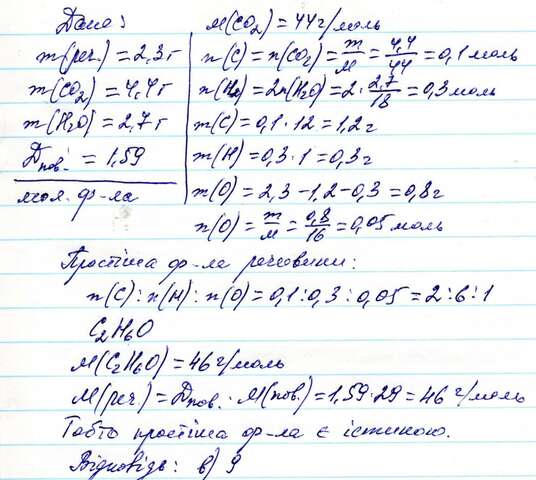 Дано:
m(реч.) = 2,3 г
m(CO₂) = 4,4 г
m(H₂O) = 2,7 г
Dпов. = 1,59
мол. ф-ла
M(CO₂) = 44 г/моль
n(C) = n(CO₂) = m/M = 4,4/44 = 0,1 моль
n(H) = 2n(H₂O) = 2 · 2,7/18 = 0,3 моль
m(C) = 0,1 · 12 = 1,2 г
m(H) = 0,3 · 1 = 0,3 г
m(O) = 2,3 - 1,2 - 0,3 = 0,8 г
n(O) = m/M = 0,8/16 = 0,05 моль
Простіша ф-ла речовини:
n(C) : n(H) : n(O) = 0,1 : 0,3 : 0,05 = 2 : 6 : 1
C₂H₆O
M(C₂H₆O) = 46 г/моль
M(реч.) = Dпов. · M(пов.) = 1,59 · 29 = 46 г/моль
Тобто простіша ф-ла є істиною.
Відповідь: в) 9